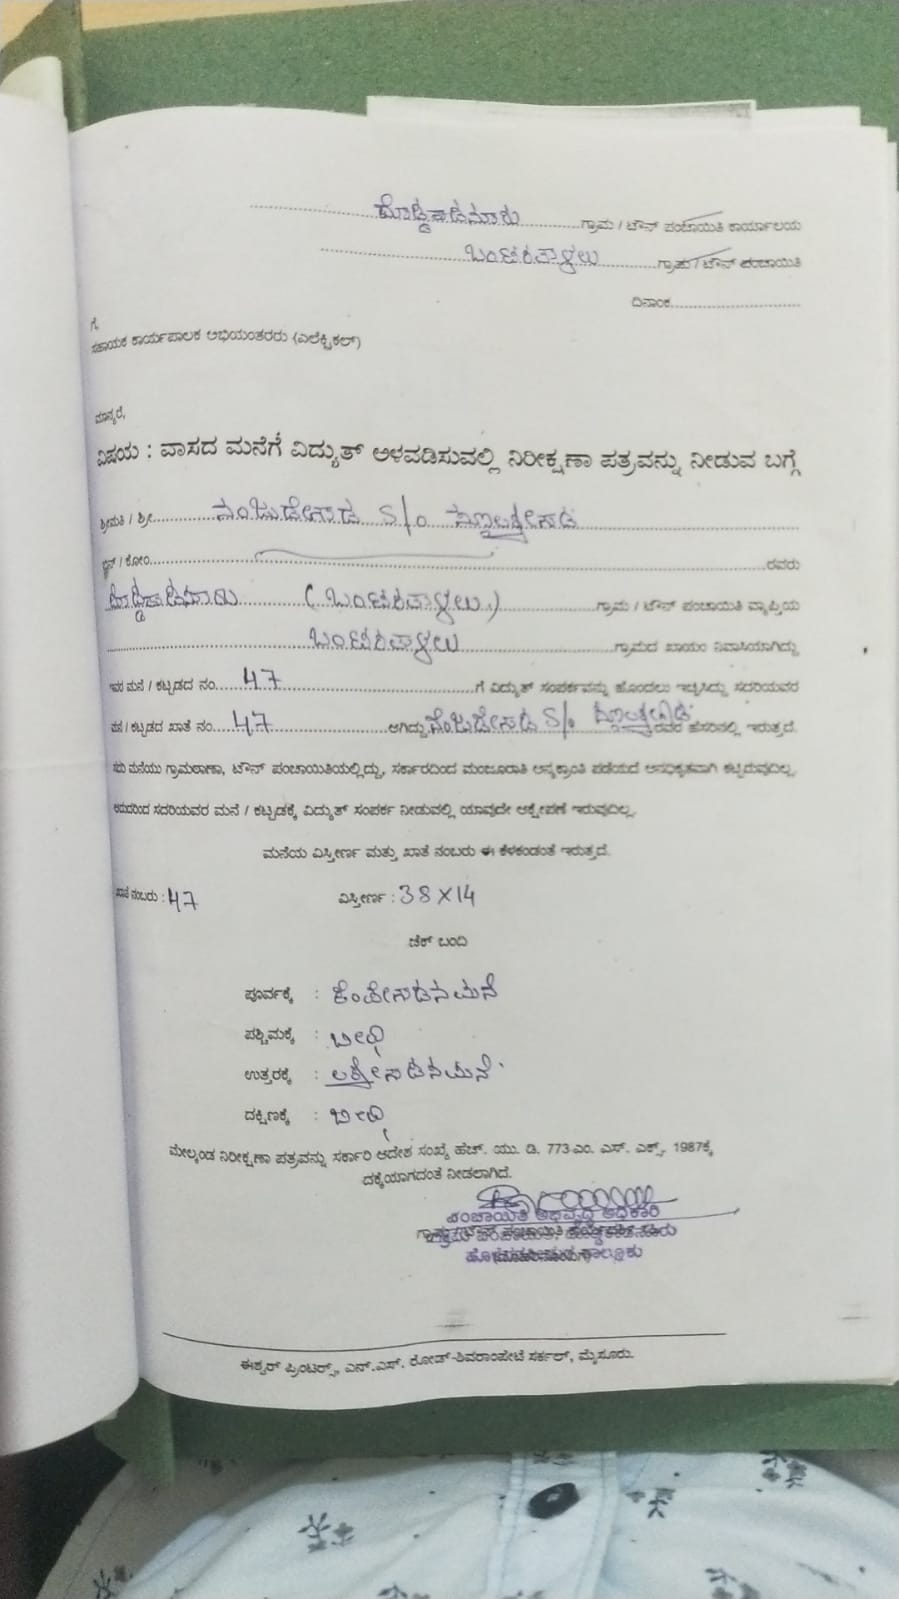 ದೊಡ್ಡಕಾಡನೂರು ಗ್ರಾಮ / ಟೌನ್ ಪಂಚಾಯಿತಿ ಕಾರ್ಯಾಲಯ
ಗ್ರಾಮ / ಟೌನ್ ಪಂಚಾಯಿತಿ
ದಿನಾಂಕ
ಗೆ,
ಸಹಾಯಕ ಕಾರ್ಯಪಾಲಕ ಅಭಿಯಂತರರು (ಎಲೆಕ್ಟ್ರಿಕಲ್)
ಮಾನ್ಯರೆ,
ವಿಷಯ : ವಾಸದ ಮನೆಗೆ ವಿದ್ಯುತ್ ಅಳವಡಿಸುವಲ್ಲಿ ನಿರೀಕ್ಷಣಾ ಪತ್ರವನ್ನು ನೀಡುವ ಬಗ್ಗೆ
ಶ್ರೀಮತಿ / ಶ್ರೀ S/o
ಬಿನ್ / ಕೋಂ ರವರು
ಗ್ರಾಮ / ಟೌನ್ ಪಂಚಾಯಿತಿ ವ್ಯಾಪ್ತಿಯ
ಗ್ರಾಮದ ಖಾಯಂ ನಿವಾಸಿಯಾಗಿದ್ದು
ಇವರ ಮನೆ / ಕಟ್ಟಡದ ನಂ. 47 ಗೆ ವಿದ್ಯುತ್ ಸಂಪರ್ಕವನ್ನು ಹೊಂದಲು ಇಚ್ಛಿಸಿದ್ದು ಸದರಿಯವರ
ಮನೆ / ಕಟ್ಟಡದ ಖಾತೆ ನಂ. 47 ಆಗಿದ್ದು S/o ರವರ ಹೆಸರಿನಲ್ಲಿ ಇರುತ್ತದೆ.
ಸದರಿ ಮನೆಯು ಗ್ರಾಮಠಾಣಾ, ಟೌನ್ ಪಂಚಾಯಿತಿಯಲ್ಲಿದ್ದು, ಸರ್ಕಾರದಿಂದ ಮಂಜೂರಾತಿ ಪಡೆಯದೆ ಅನಧಿಕೃತವಾಗಿ ಕಟ್ಟಿರುವುದಿಲ್ಲ.
ಆದುದರಿಂದ ಸದರಿಯವರ ಮನೆ / ಕಟ್ಟಡಕ್ಕೆ ವಿದ್ಯುತ್ ಸಂಪರ್ಕ ನೀಡುವಲ್ಲಿ ಯಾವುದೇ ಆಕ್ಷೇಪಣೆ ಇರುವುದಿಲ್ಲ.
ಮನೆಯ ವಿಸ್ತೀರ್ಣ ಮತ್ತು ಖಾತೆ ನಂಬರು ಈ ಕೆಳಕಂಡಂತೆ ಇರುತ್ತದೆ.
ಖಾತೆ ನಂಬರು : 47 ವಿಸ್ತೀರ್ಣ : 38 X 14
ಚೆಕ್ ಬಂದಿ
ಪೂರ್ವಕ್ಕೆ : ಕೆಂಪೇಗೌಡನ ಮನೆ
ಪಶ್ಚಿಮಕ್ಕೆ : ಬೀದಿ
ಉತ್ತರಕ್ಕೆ : ಲಕ್ಕೇಗೌಡನ ಮನೆ
ದಕ್ಷಿಣಕ್ಕೆ : ಬೀದಿ
ಮೇಲ್ಕಂಡ ನಿರೀಕ್ಷಣಾ ಪತ್ರವನ್ನು ಸರ್ಕಾರಿ ಆದೇಶ ಸಂಖ್ಯೆ ಹೆಚ್. ಯು. ಡಿ. 773-ಎಂ. ಎಸ್. ಎಕ್ಸ್. 1987ಕ್ಕೆ
ದಕ್ಕೆಯಾಗದಂತೆ ನೀಡಲಾಗಿದೆ.
ಪಂಚಾಯಿತಿ ಅಭಿವೃದ್ಧಿ ಅಧಿಕಾರಿ
ಈಶ್ವರ್ ಪ್ರಿಂಟರ್ಸ್, ಎನ್.ಎಸ್. ರೋಡ್-ಶಿವರಾಂಪೇಟೆ ಸರ್ಕಲ್, ಮೈಸೂರು.